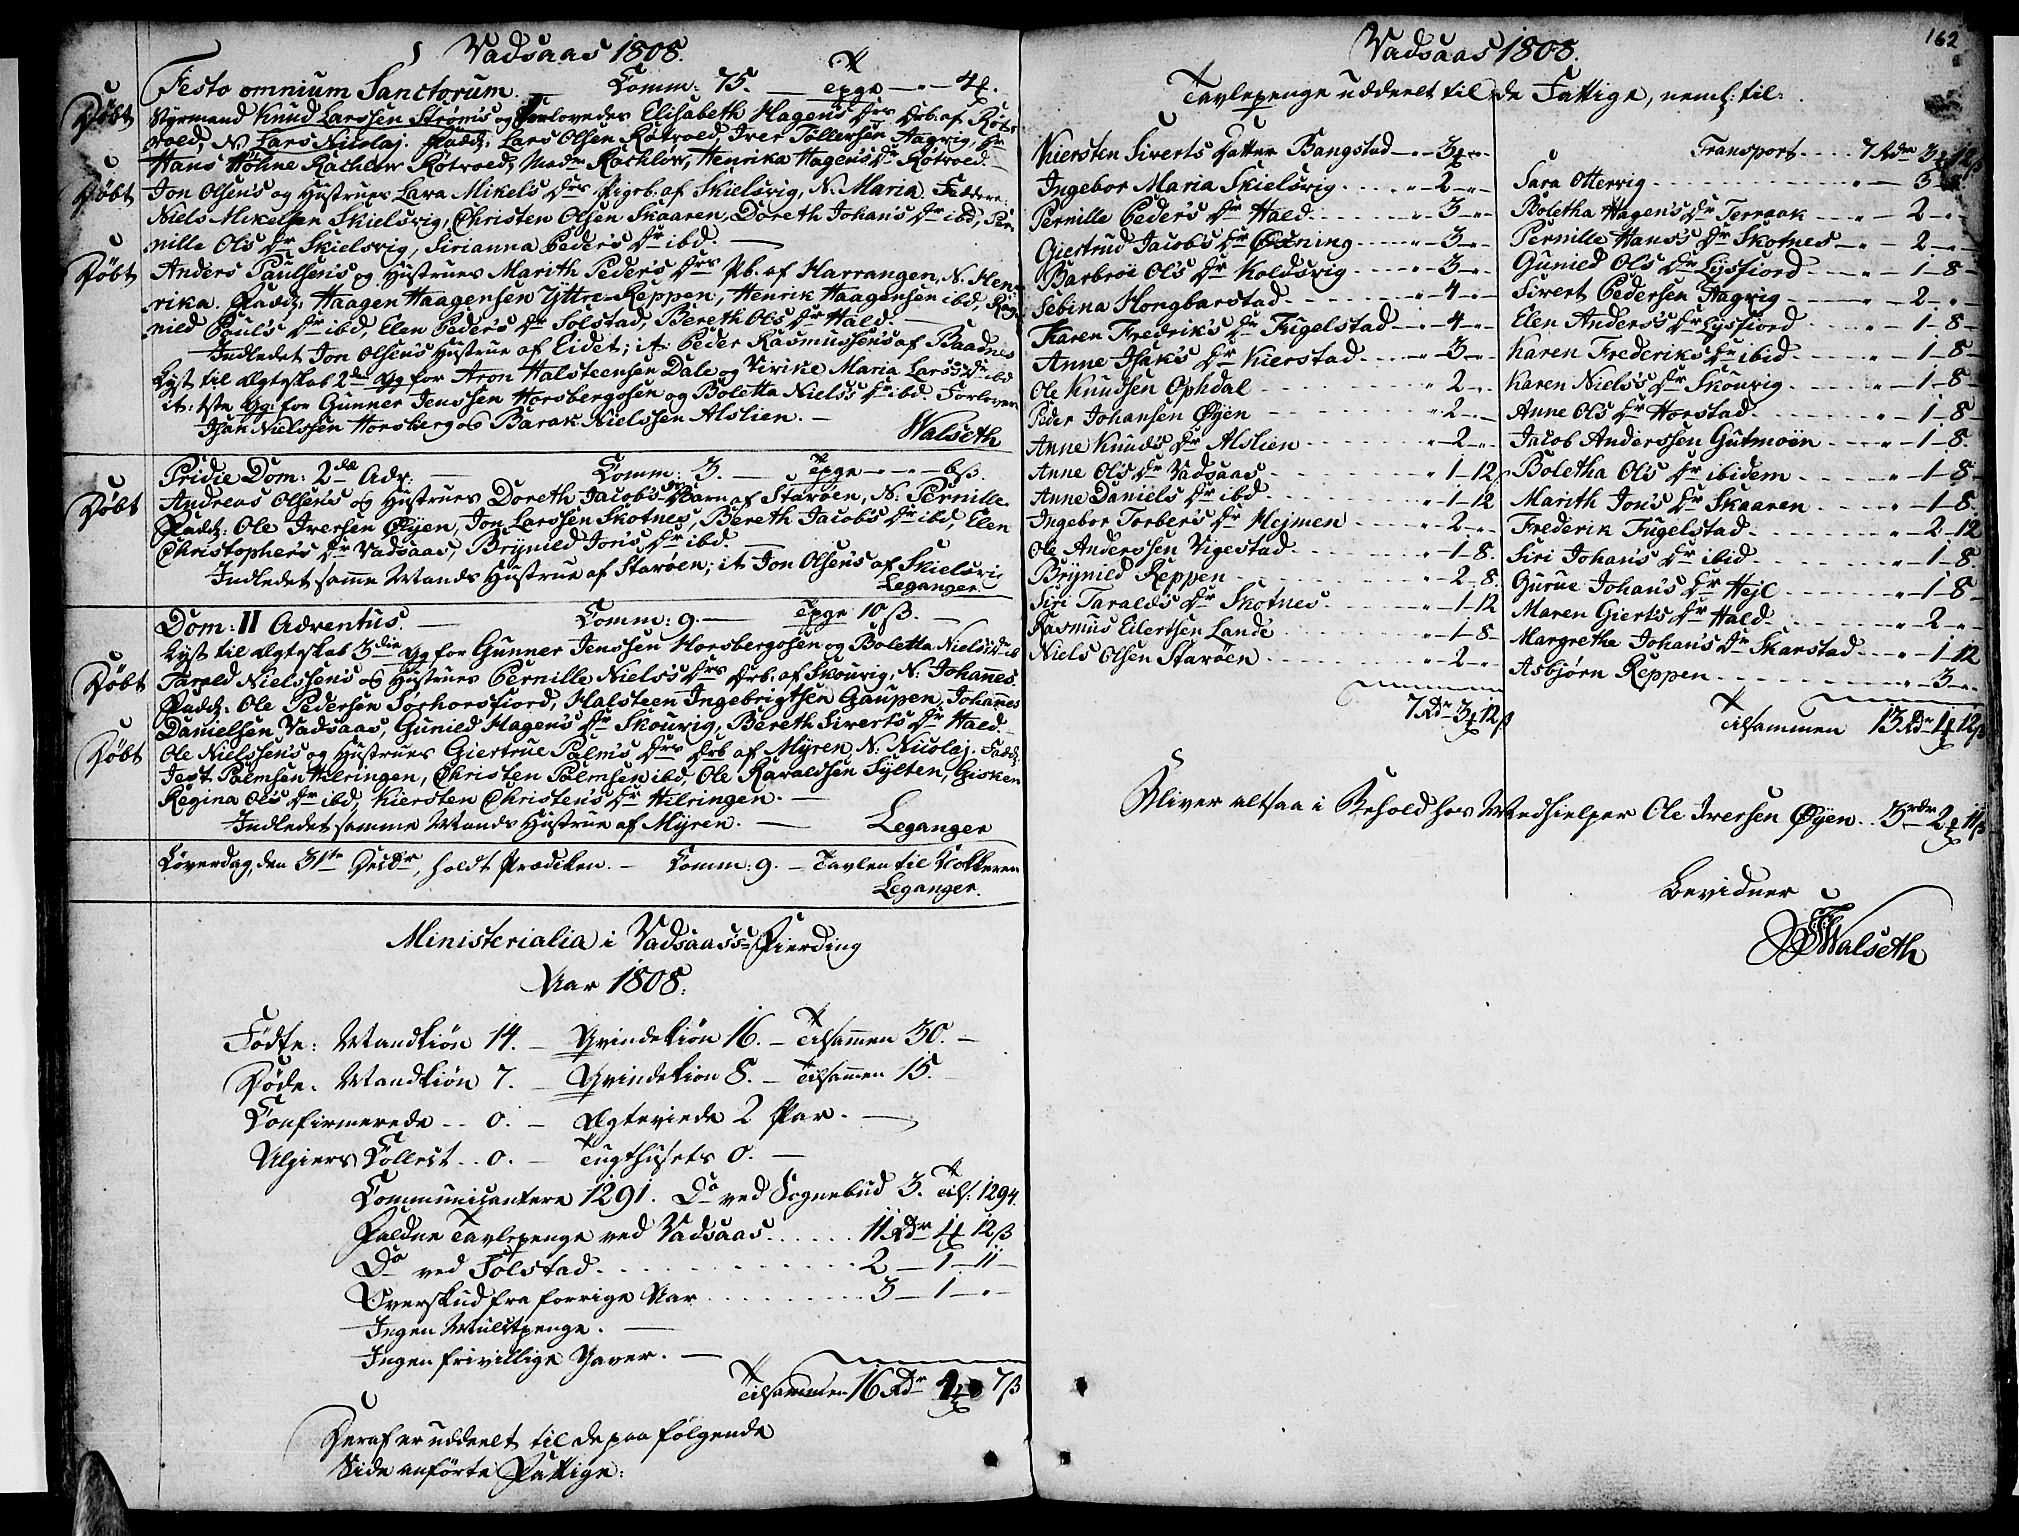 Vadsaas 1808.
Festo omnium Sanctorum. — Comm: 75. — Tpge — " — 4
Døbt
Styrmand Knud Larssen Strøm's og Forlovedes Elisabeth Hagens Drs Drb. af Røt-
roed, N Lars Nicolaj. Fadd: Lars Olsen Røtroed, Iver Tollersen Aagvig, Hr
Hans Høhne Rachlow Røtroed, Madm Rachlow, Henrika Hagens Dr Røtroed.
Døbt
Jon Olsens og Hustrues Lara Mikels Drs Pigeb. af Skielsvig, N. Maria. Faddere:
Niels Mikelsen Skielsvig, Christen Olsen Skaaren, Doreth Johans Dr ibd, Per-
nille Ols Dr Skielsvig, Sirianna Peders Dr ibd. —
Døbt
Anders Paulsens og Hustrues Marith Peder's Drs Pb. af Harrangen, N. Hen-
rika. Fadd: Haagen Haagensen Yttre-Reppen, Henrik Haagensen ibd, Røg-
nild Poul's Dr ibd, Elen Peder's Dr Solstad, Bereth Ols Dr Hald. —
Indledet Jon Olsens Hustrue af Eidet; it: Peder Rasmussens af Baadnes
Lyst til Ægteskab 2den Gg for Aron Halsteensen Dale og Virike Maria Lars's Dr ibd
it: 1ste Gg: for Gunner Jenssen Horsbergosen og Boletta Niels's Dr ibd. Forlovere
Isak Nielssen Horsberg og Barak Nielssen Alslien. —
Walseth
Pridie Dom: 2da Adv: — Comm: 3. — Tpge — " — 6 ß.
Døbt
Andreas Olsens og Hustrues Doreth Jacobs Drs Barn af Starøen, N: Pernille
Fadd: Ole Iversen Øyen, Jon Larssen Skotnes, Bereth Jacobs Dr ibd, Elen
Christopher's Dr Vadsaas, Brynild Jons Dr ibd. —
Indledet samme Mands Hustrue af Starøen; it Jon Olsens af Skielsvig
Leganger.
Dom: II Adventus. — Comm: 9. — Tpge 10 ß. —
Lyst til Ægteskab 3die Gg for Gunner Jenssen Horsbergosen og Boletta Niels's Dr ib
Døbt
Tarald Nielssens og Hustrues Pernille Niels's Drs Drb. af Skouvig, N: Johannes.
Fadd: Ole Pedersen Sørhorsfiord, Halsteen Ingebrigtsen Gaupen, Johannes
Danielsen Vadsaas, Gunild Hagen's Dr Skouvig, Bereth Sivert's Dr Hald.
Døbt
Ole Nielssens og Hustrues Giertrue Palm's Drs Drb af Myren, N: Nicolaj. Fadd:
Jest Palmsen Hilringen, Christen Palmsen ibd, Ole Haraldsen Sylten, Gisken
Regina Ols Dr ibd, Kiersten Christens Dr Hilringen. —
Indledet samme Mands Hustrue af Myren. — Leganger
Løverdag, den 31te Decbr, holdt Prædiken. — Comm: 9. — Tavlen til Klokkeren
Leganger.
Ministerialia i Vadsaas's-Fierding
Aar 1808.
Fødte: Mandkiøn 14. — Qvindekiøn 16. — Tilsammen 30. —
Døde: Mandkiøn 7. — Qvindekiøn 8. — Tilsammen 15.
Confirmerede .. 0. — Ægteviede 2 Par. —
Algiers Collect .. 0. — Tugthusets 0. —
Communicantere 1291. Do ved Sognebud 3. Tils: 1294.
Faldne Tavlepenge ved Vadsaas ..... 11 Rdr 1 12 ß
Do ved Solstad. ........ 2 — 1 — 11 —
Overskud fra forrige Aar ........ 3 — 1 — " —
Ingen Mulctpenge. —
Ingen frivillige Gaver. —
Tilsammen 16 Rdr 4 7 ß
Deraf er uddeelt til de paa følgende
Side anførte Fattige:
162
Vadsaas 1808.
Tavlepenge uddeelt til de Fattige, neml: til:
Kiersten Siverts Datter Bangstad — " — 3 — " —
Ingebor Maria Skielsvig .... " — 2 — " —
Pernille Peder's Dr Hald ..... " — 3 — " —
Giertrud Jacobs Dr Øxning .... " — 3 — " —
Barbroe Ol's Dr Koldsvig .... " — 3 — " —
Sebina Hongbarstad ...... " — 4 — " —
Karen Fredrik's Dr Fugelstad — " — 4 — " —
Anne Isak's Dr Kierstad .... " — 3 — " —
Ole Knudsen Ophdal ...... " 2 — " —
Peder Johansen Øyen ...... " — 2 — " —
Anne Knuds Dr Alslien ..... " — 2 — " —
Anne Ols Dr Vadsaas ...... " 1 — 12
Anne Daniels Dr ibd ...... " — 1 — 12
Ingebor Torber's Dr Mejmen .... " — 2 — " —
Ole Anderssen Vigestad ..... " — 1 — 8.
Brynild Reppen ....... " — 2 8.
Siri Taralds Dr Skotnes ..... " — 1 — 12
Rasmus Eilertsen Lande ..... " — 1 — 8 —
Niels Olsen Starøen ...... " — 2 — " —
7 Rdr 3 12 ß
Transport .... 7 Rdr 3 12 ß
Sara Ottervig ........ " — 3 8.
Boletha Hagens Dr Terraak — " — 2 — " —
Pernille Hans's Dr Skotnes — " — 2 — " —
Gunild Ols Dr Lysfiord ..... " — 1 — 8 —
Sivert Pedersen Aagvig ..... " — 2 — " —
Elen Anders's Dr Lysfiord ... " — 1 — 8 —
Karen Frederiks Dr ibid .... " — 1 — 8 —
Karen Niels's Dr Skouvig .... " — 1 — 8 —
Anne Ols Dr Horstad ...... " — 1 — 8 —
Jacob Anderssen Gutmoen .... " — 1 — 8.
Boletha Ols Dr ibidem .... " — 1 — 8
Marith Jons Dr Skaaren .... " — 1 — 8.
Frederik Fugelstad ...... " — 2 — 12
Siri Johans Dr ibid ...... " — 1 — 8.
Gurue Johans Dr Hejl ..... " — 1 — 8 —
Maren Gierts Dr Hald ..... " — 2 — " —
Margrethe Johans Dr Skarstad — " — 1 — 12
Asbjørn Reppen ........ " — 3 — " —
Tilsammen 13 Rdr 1 12 ß
Bliver altsaa i Behold hos Medhielper Ole Iversen Øyen .. 3 rdr 2 11 ß
Bevidner
Walseth